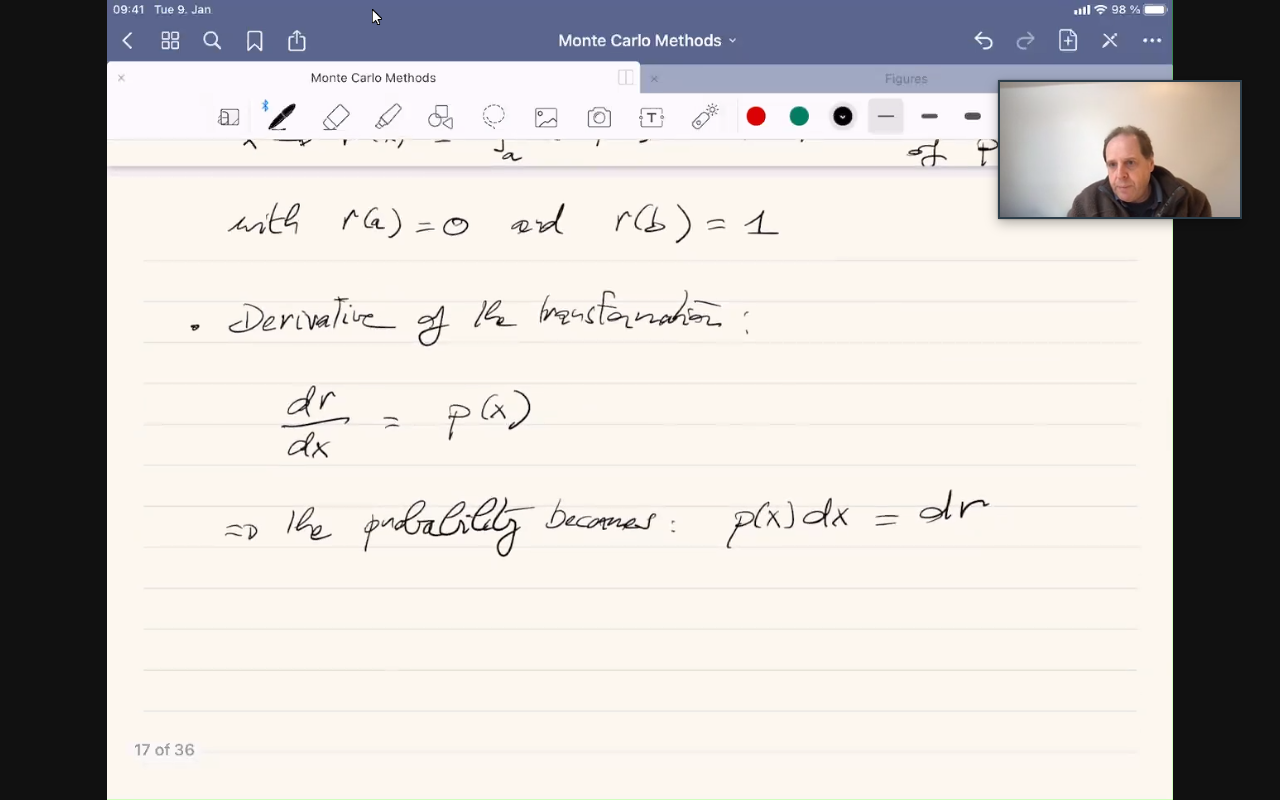 09:41 Tue 9. Jan 98 %
Monte Carlo Methods
Monte Carlo Methods Figures
T
of p
with r(a) = 0 and r(b) = 1
• Derivative of the transformation :
dr/dx = p(x)
⇒ the probability becomes : p(x)dx = dr
17 of 36